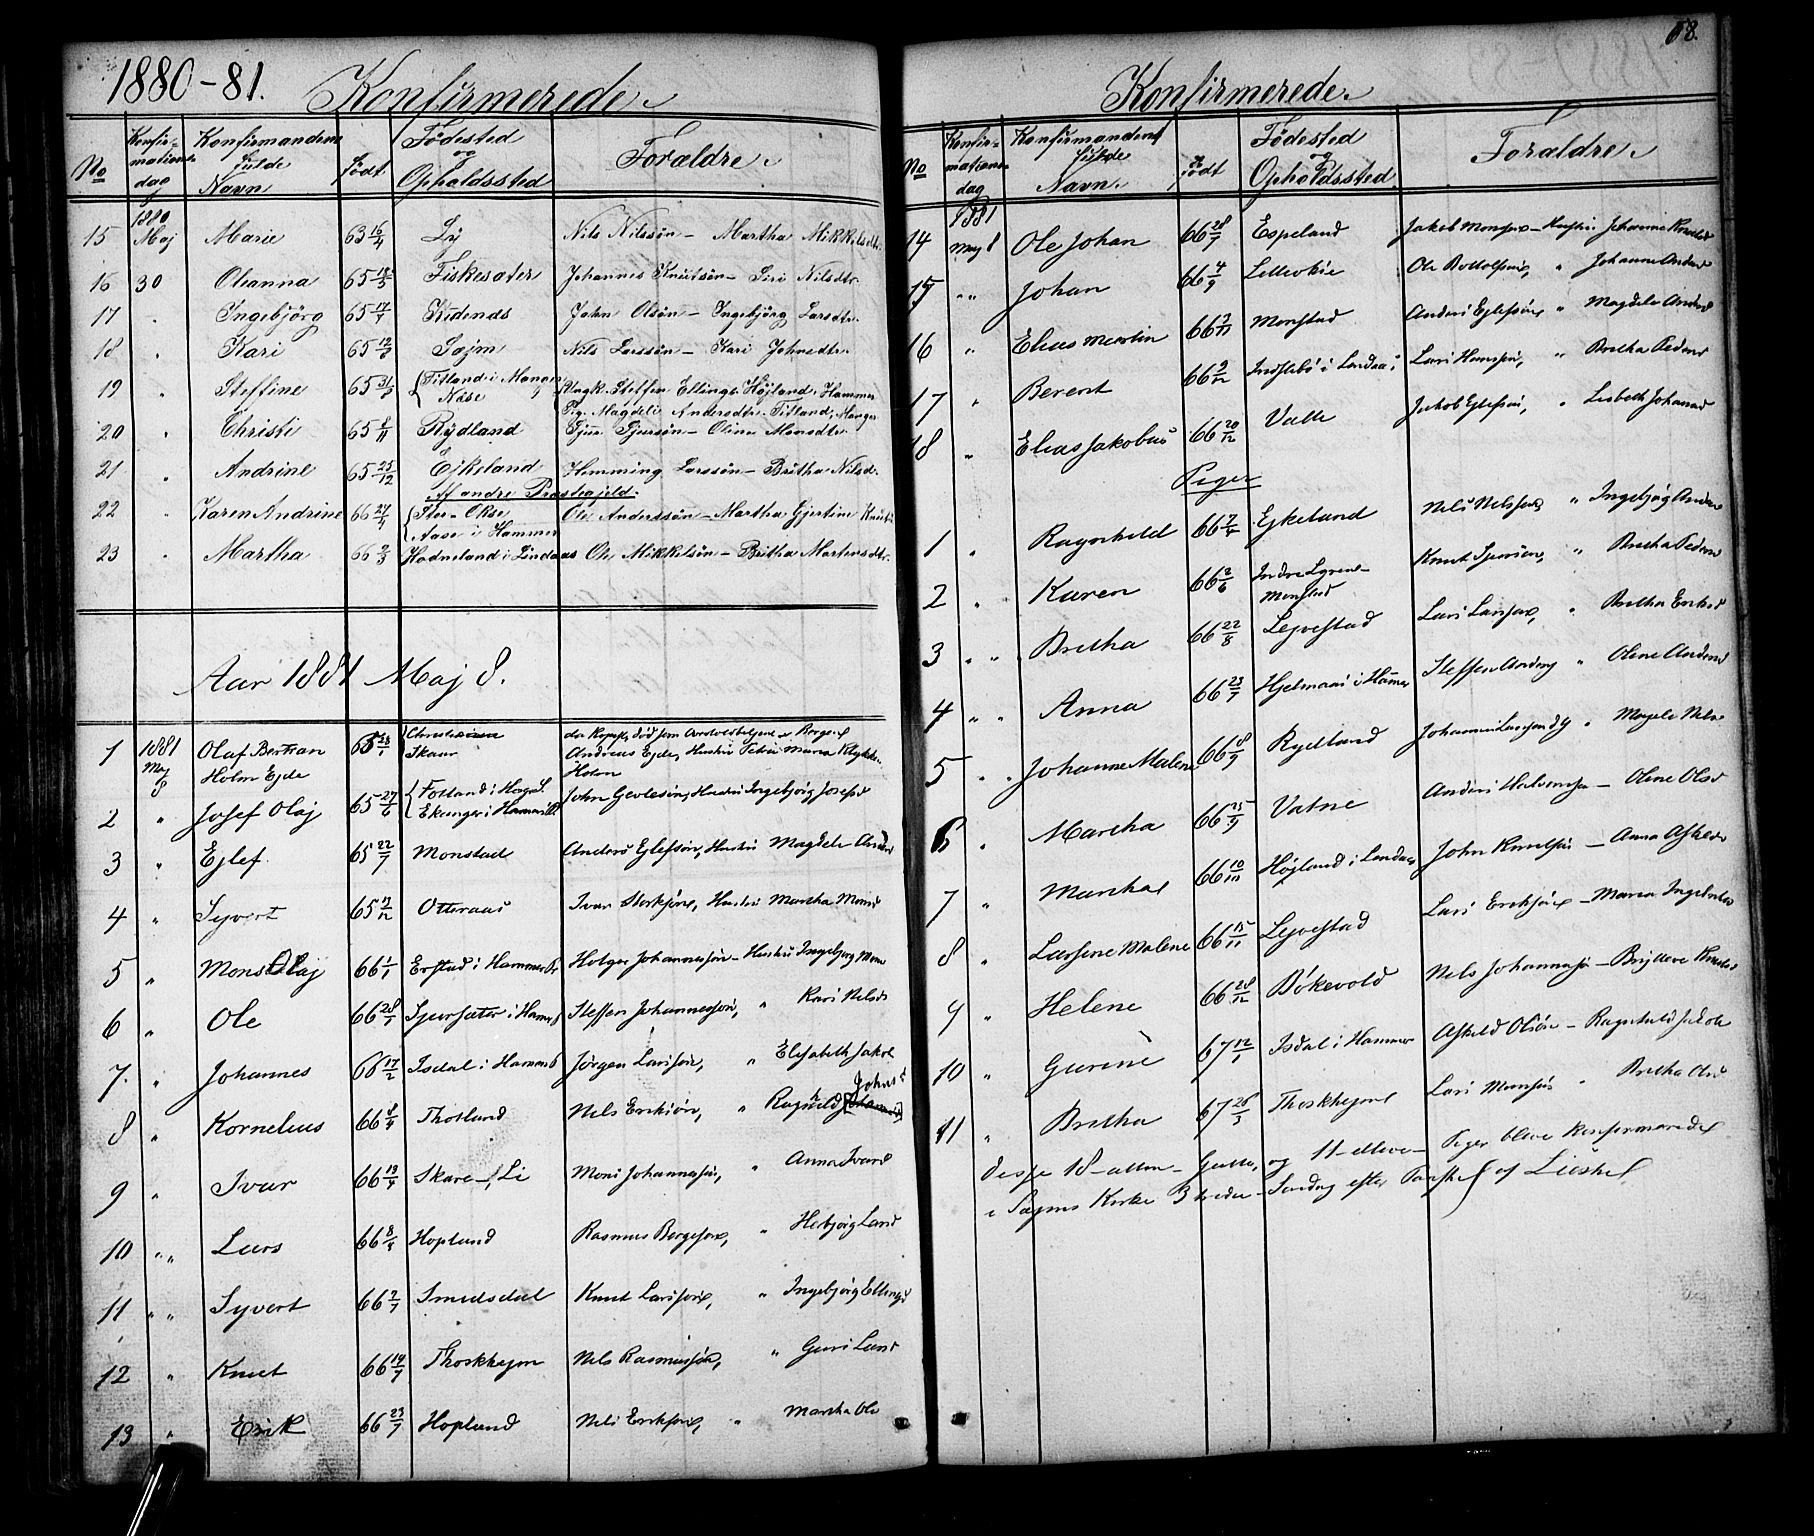 1880-81. Konfirmerede.
No Konfirmationsdag Konfirmandens fulde Navn Født Fødested og Opholdssted Forældre.
15 1880 Maj Marie 63 16/4 Lÿ Nils Nilssön - Martha Mikkelsdtr.
16 30 Olianna 65 18/5 Fiskesæter Johannes Knutsön - Siri Nilsdtr.
17 " Ingebjörg 65 17/7 Kidenæs John Olsön - Ingebjörg Larsdtr.
18 " Kari 65 12/8 Sæjm Nils Larssön - Kari Johnsdtr.
19 " Steffine 65 31/8 Titland i Manger Näse Ungk. Steffen Ellings. Höjland, Hammer
Pig. Magdeli Andersdtr. Titland, Manger
20 " Christi 65 8/11 Rÿdland Sjur Sjursön - Oline Monsdtr.
21 " Andrine 65 25/12 Ejkeland Hemming Larssön - Britha Nilsd.
Af andre Præstegjeld.
22 " Karen Andrine 66 27/4 Stor-Okse Aase i Hammer Ole Anderssön - Martha Gjertine Knuts
23 " Martha 66 2/3 Hodneland i Lindaas Ole Mikkelsön - Britha Martensdtr.
Aar 1881 Maj 8.
1 1881 Maj 8 Olaf Bertran Holm Ejde Skaar
Andreas Ejde, Hustru Petra Maria
Holm
2 " Josef Olaj 65 27/6 Ekanger i Hammer John Hustru Ingebjörg Josefsd
3 " Ejlef. 65 22/7 Monstad Anders Ejlefsön, Hustru Magdela Andersd
4 " Syvert Otteraas Ivar Hustru Martha Monsd
5 " Mons Olaj 66 1/1 Erstad i Hammer Holger Johannessön - Hustru Ingebjørg Mons
6 " Ole 66 28/1 Sjursæter i Hammer Steffen Johannessön, " Kari Nilsd
7. " Johannes 66 17/2 Isdal i Hammer Jörgen Larssön, " Elisabeth Jakob
8 " Kornelius 66 8/4 Nils Eriksön, " Ragnhild Johns
9 " Ivar 66 13/4 Skare, Li Mons Johannessön, " Anna Ivarsd
10 " " Lars 66 8/4 Hopland Rasmus Børgeson, " Herbjörg Larsd
11 " " Syvert 66 7/7 Smidsdal Knut Larsson, " Ingebjörg Ellingsd
12 " Knut 66 14/7 Thoskhejm Nils Rasmussön, " Guri Larsd
13 " Erik 66 23/7 Hopland Nils Eriksson, " Martha Ole
68.
Konfirmerede.
No Konfirmationsdag Konfirmandens fulde Navn. Født Fødested og Opholdssted Forældre.
14 1881 Maj 8 Ole Johan 66 28/7 Espeland Jakob Monssen - Hustru Johanna Knutsd
15 " " Johan 66 4/9 Ole " Johanne Andersd
16 " Elias Martin Monstad Anders Ejlefsön " Magdela Andersd
17 " Berent 66 9/12 i Lindaas Lars Hanssön, " Britha Pedersd
18 " Elias Jakobus 66 20/12 Valle Jakob Ejlefsön, " Lisbeth Johannesd
Piger
1 " Ragnhild 66 7/4 Ejkeland Nils Nilssen " Ingebjörg Andersd
2 " Karen 66 2/6 Indre Lyrene- Monstad Knut " Britha Pedersd
3 " " " Britha 66 22/8 Lejvestad Lars Larsson, " Britha Eriksd
4 " " Anna 66 23/7 Hjelmaas i Hamer Steffen " Oline Andersd
5 " " Johanne Malene 66 8/9 Rydland Johannes " Magela Nils
6 " Martha 66 25/9 Vatne Anders - Oline Olsd
7 " Martha 66 10/10 Höjland i Lindaas John Knutssön - Anna
8 " Larsine Malene 66 15/11 Lejvestad Lars Eriksön - Maria
9 " Helene 66 28/12 Bökevold Nils Johannessön - Knutsd
10 " Gurine 67 12/1 Isdal i Hammer Olsön - Ragnhild Jakob
11 " Britha 67 26/3 Thoskhejm Lars Monssön " Britha
Disse 18-atten- Gutter, og 11-elleve- Piger bleve konfirmerede
i Sæjms Kirke 3 tredie- Søndag efter Paaske af